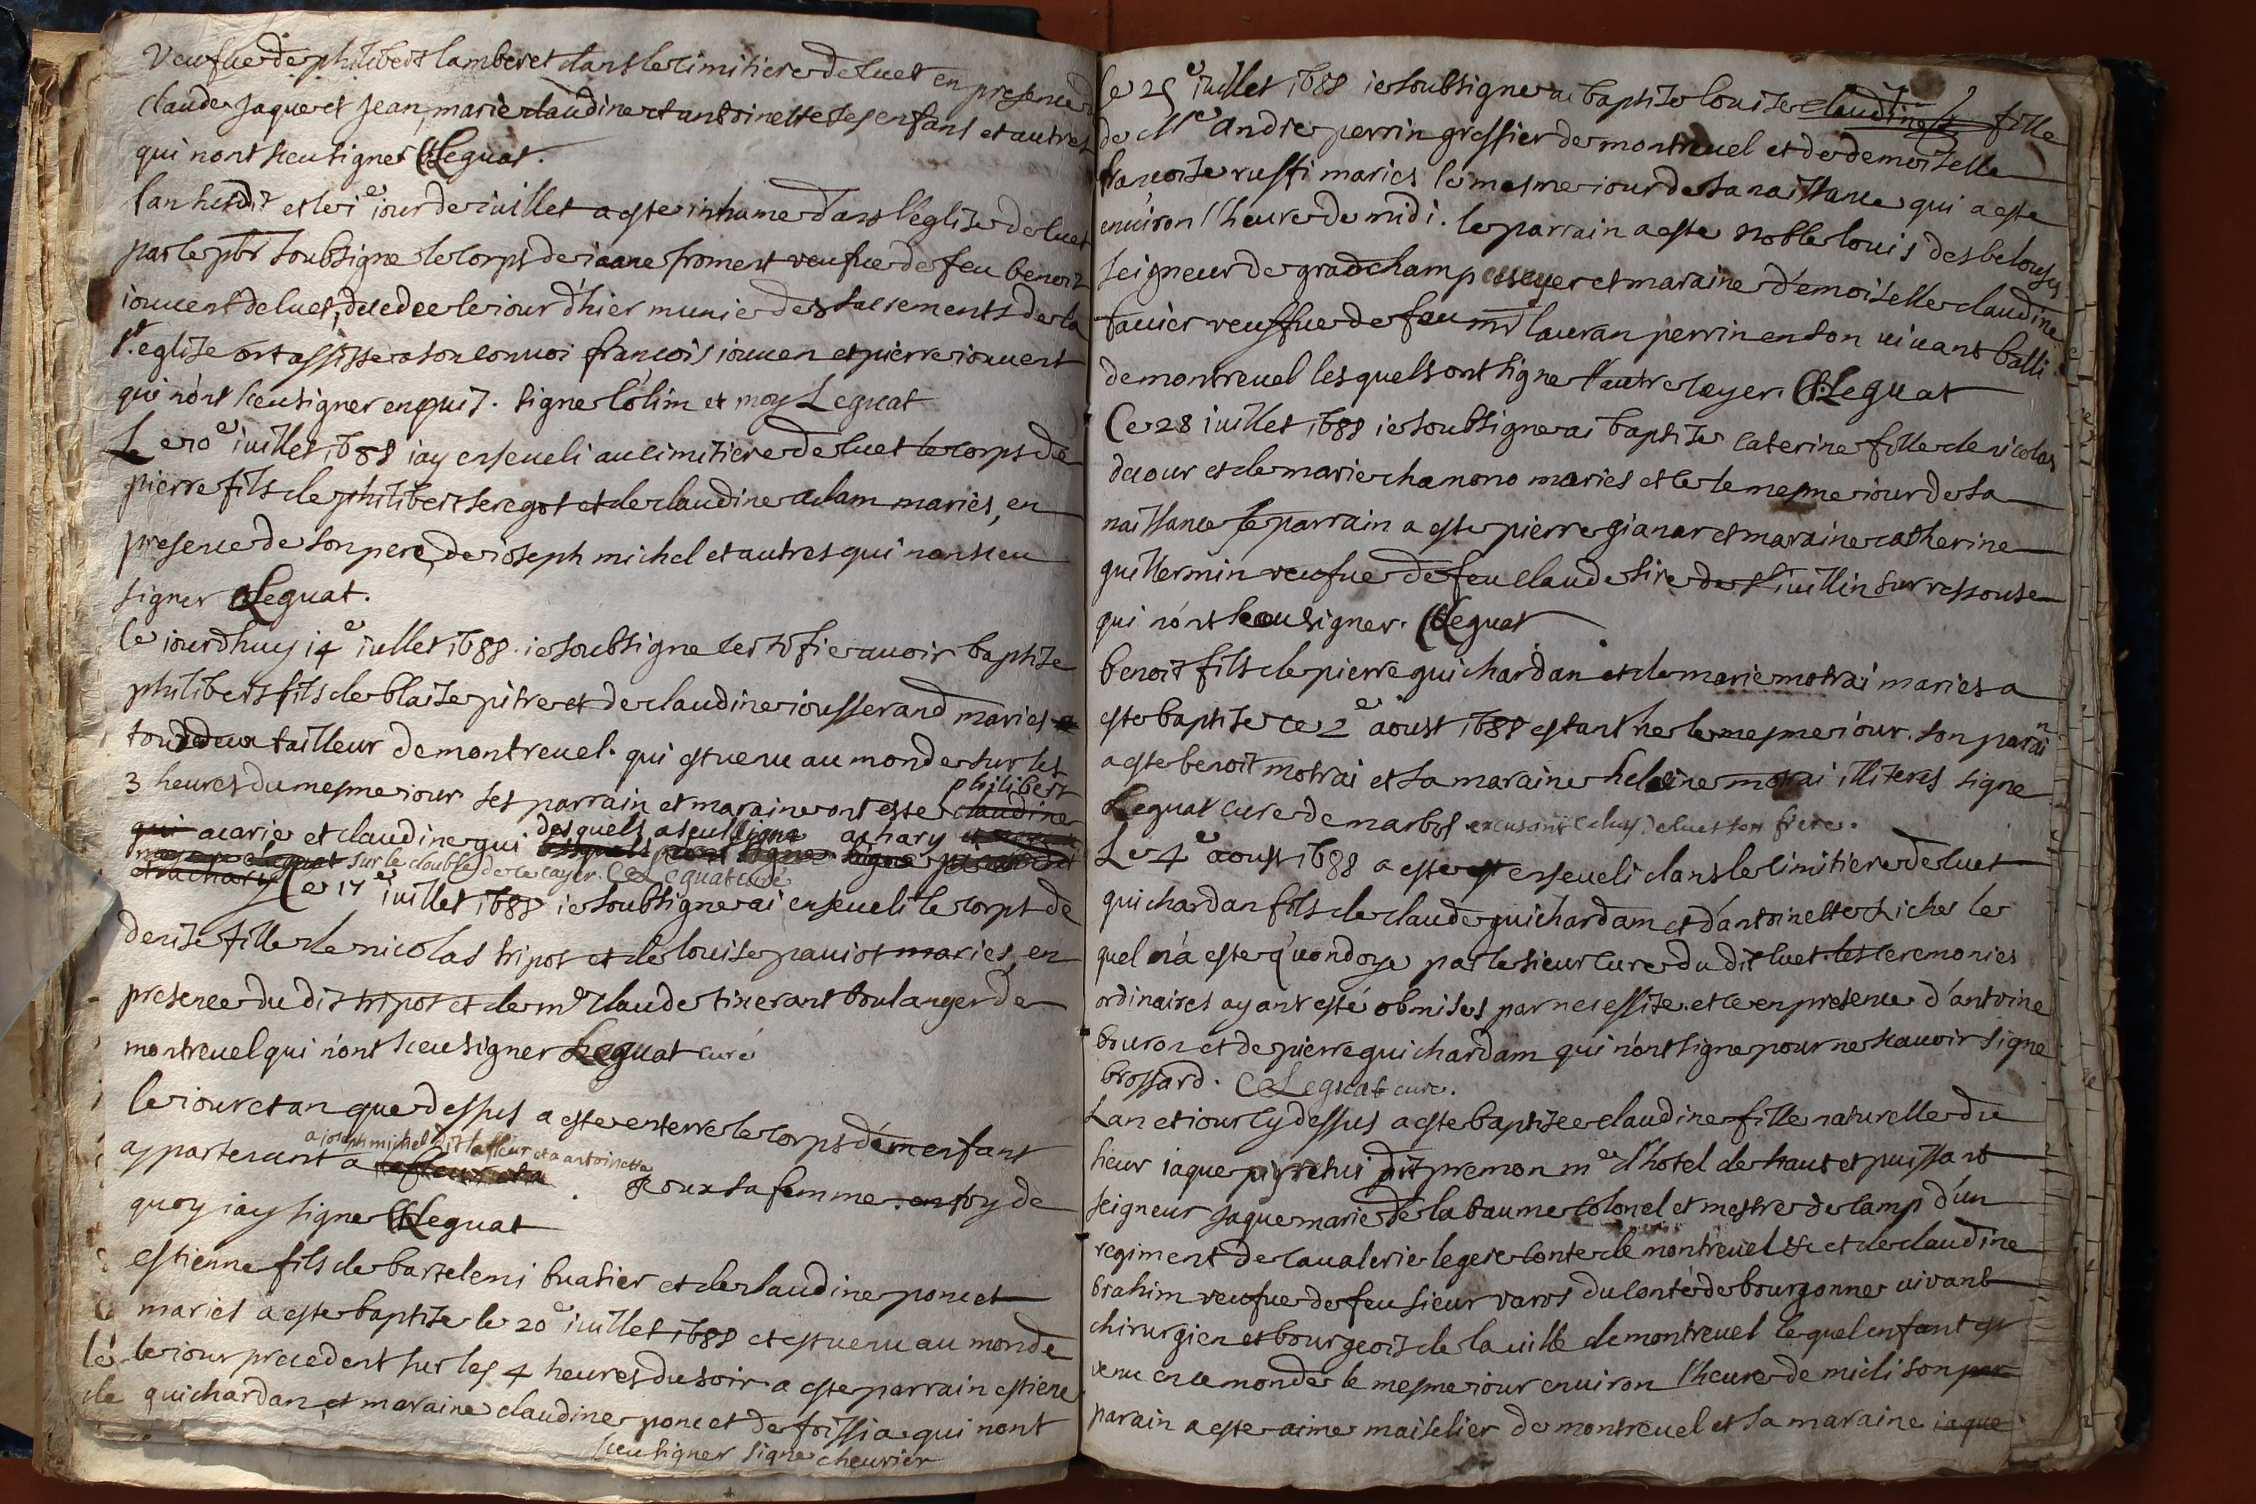 veufue de philibert lamberet dans le cimitiere de luet en presence de
claude jaque et jean, marie claudine et antoinette ses enfans et autres
qui nont sceu signer CLeguat.
lan susdit et le 1e iour de iuillet a este inhume dans leglise de luet
par le pbr soubsigne le corps de ieane froment veufue de feu benoit
iouuent de luet, decedee le iour d'hier munie des sacrements de la
st. eglise ont assisse a son conuoi francois iouuen et pierre iouuent
qui n'ont sceu signer enquis. signe Colim et moy Leguat
Le 10e iuillet 1688 iay enseueli au cimitiere de luet le corps de
pierre fils de philibert seregot et de claudine adam mariés, en
presence de son pere, de ioseph michel et autres qui nont sceu
signer CLeguat.
le iourdhuy 14e iullet 1688. ie soubsigne certifie auoir baptise
philibert fils de blaise pitre et de claudine iousserand maries
tailleur de montreuel. qui est venu au monde sur les
3 heures du mesme iour ses parrain et maraine ont esté philibert claudine
qui acarie et claudine qui desquels a seul signe achary
sur le double de ce cayer. CLeguat curé
et achary Ce 17e iuillet 1688 ie soubsigne ai enseueli le corps de
denise fille de nicolas tripot et de louise pauiot maries, en
presence du dit tripot et de me claude tixerant boulanger de
montreuel qui n'ont sceu signer Leguat curé
le iour et an que dessus a este enterre le corps d'un enfant
a joseph michel dit lafleur et a antoinette
appartenant a lafleur et a roux sa femme. en foy de
quoy iay signe CLeguat
estienne fils de bartelemi buatier et de claudine poncet
mariés a este baptise le 20e iuillet 1688 et est venu au monde
le iour precedent sur les 4 heures du soir a este parrain estiene
guichardan, et maraine claudine poncet de foissia qui nont
sceu signer signe cheurier
le 25e iuillet 1688 ie soubsigne ai baptise louise claudine fille
de Me andre perrin greffier de montreuel et de demoiselle
francoise russi mariés le mesme iour de sa naissance qui a este
enuiron l'heure de midi. le parrain a este noble louis des belouses
seigneur de gradchamp escuyer et maraine d'emoiselle claudine
tauier veuffue de feu mr lauran perrin en son uiuant balli
de montreuel lesquels ont signe l'autre cayer. CLeguat
Ce 28 iuillet 1688 ie soubsigne ai baptise caterine fille de nicolas
dufour et de marie chanono mariés et le mesme iour de sa
naissance le parrain a este pierre gianar et maraine catherine
guillermin veufue de feu claude sire de st iullin sur ressouse
qui n'ont sceu signer. CLeguat
benoit fils de pierre guichardan et de marie motrai mariés a
este baptise ce 2e aoust 1688 estant ne le mesme iour. son parain
a este benoit motrai et sa maraine heleine motrai illiteres signe
Leguat cure de marbos
Le 4e aoust 1688 a este enseueli dans le cimitiere de luet
guichardan fils de claude guichardam et d'antoinette sicher le
quel n'a este qu'ondoye par le sieur cure du dit luet. les ceremonies
ordinaires ayant esté obmises par necessite. et ce en presence d'antoine
bouron et de pierre guichardam qui n'ont signe pour ne scauoir signe
brossard. CLeguat cure.
Lan et iour cy dessus a este baptisee claudine fille naturelle du
sieur iaque dit premon me d'hotel de haut et puissant
seigneur jaque marie de la baume colonel et mestre de camp d'un
regiment de caualerie legere conte de montreuel &c et de claudine
brahim veufue de feu sieur varos du conté de bourgonne uivant
chirurgien et bourgeois de la uille de montreuel le quel enfant est
venu en ce monde le mesme iour enuiron l'heure de midi son par
parain a este aime maiselier de montreuel et sa maraine iaque